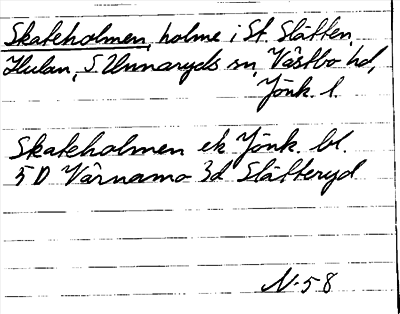 Skateholmen, holme i St. Slätten,
Hulan, S. Unnaryds sn, Västbo hd,
Jönk. l.
Skateholmen ek Jönk. bl.
5D Värnamo 3d Slätteryd
N-58